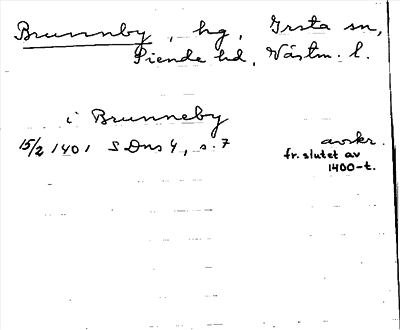 Brunnby, hg, Irsta sn,
Siende hd, Västm. l.
i Brunneby
15/2 1401 SDns 4, s. 7 avskr.
fr. slutet av
1400-t.